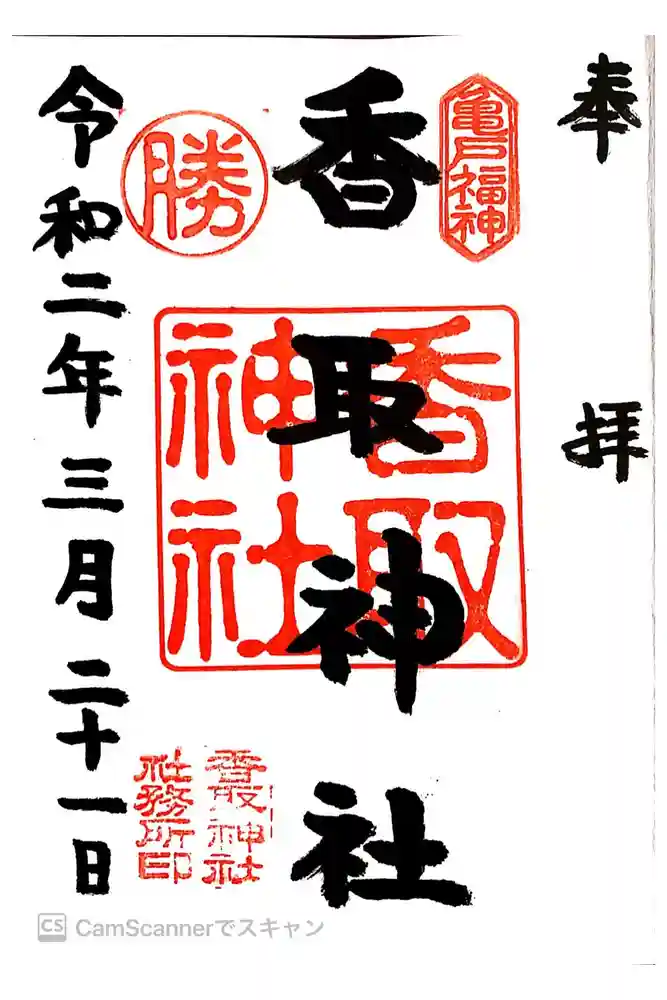 奉拝
亀戸福神
香取神社
香取
神社
勝
香取神社
社務所印
令和二年三月二十一日
CS CamScannerでスキャン